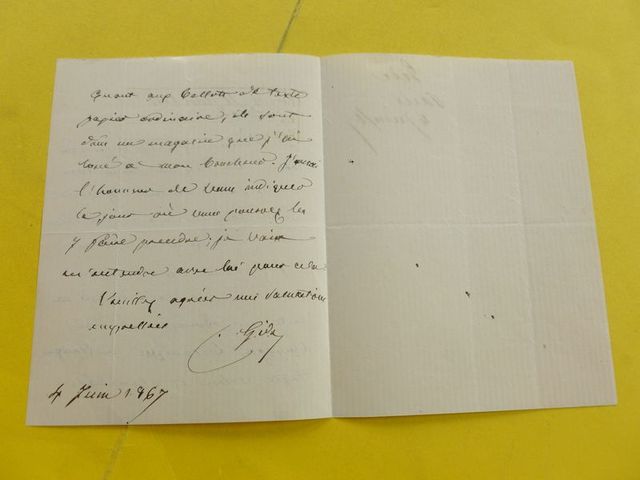 Quant aux ballots de texte
papier ordinaire, ils sont
dans un magasin que j'ai
loué à mon boucheur. J'aurai
l'honneur de vous indiquer
le jour où vous pourrez les
y faire prendre; je vais
m'entendre avec lui pour cela
Veuillez agréer mes salutations
empressées
Gide
4 Juin 1867